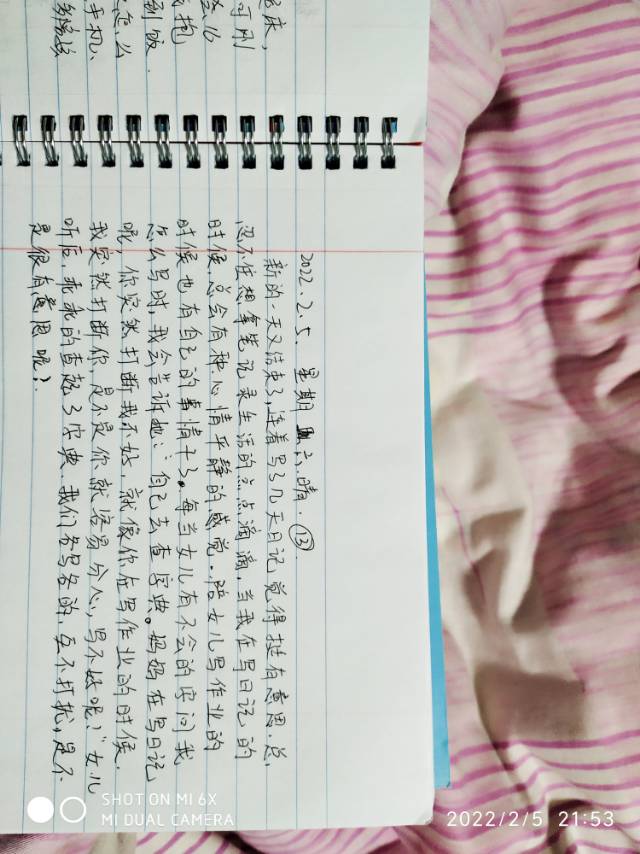 起床,
可刚
会儿
我抱
到饭.
怎么
手机.
2022.2.5. 星期六.晴. ⑬
新的一天又结束了,连着写了几天日记,觉得挺有意思.总,
忍不住想拿笔记录生活的点点滴滴,当我在写日记的
时候,总会有种心情平静的感觉.陪女儿写作业的
时候也有自己的事情干了。每当女儿有不会的字问我
怎么写时,我会告诉她:“自己去查字典。妈妈在写日记
呢,你突然打断我不好,就像你在写作业的时候.
我突然打断你,是不是你就容易分心,写不好呢?”女儿
听后,乖乖的查起了字典.我们各写各的,互不打扰,是不
是很有意思呢?.
SHOT ON MI 6X
MI DUAL CAMERA
2022/2/5 21:53